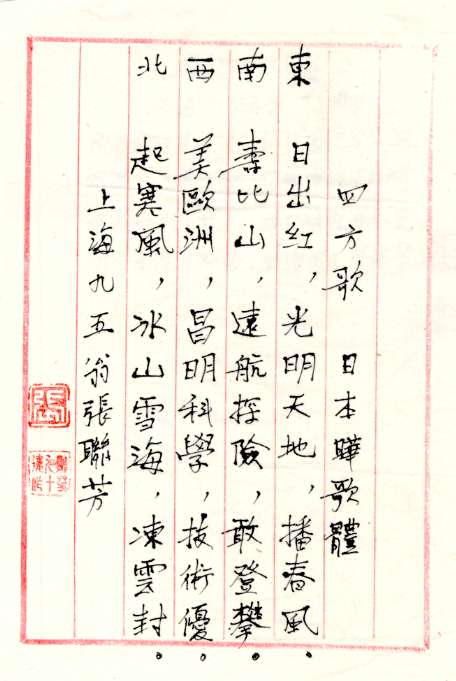 四方歌 日本曄歌體
東 日出紅，光明天地，播春風
南 壽比山，遠航探險，敢登攀
西 美歐洲，昌明科學，技術優
北 起寒風，冰山雪海，凍雲封
上海九五翁張聯芳
張